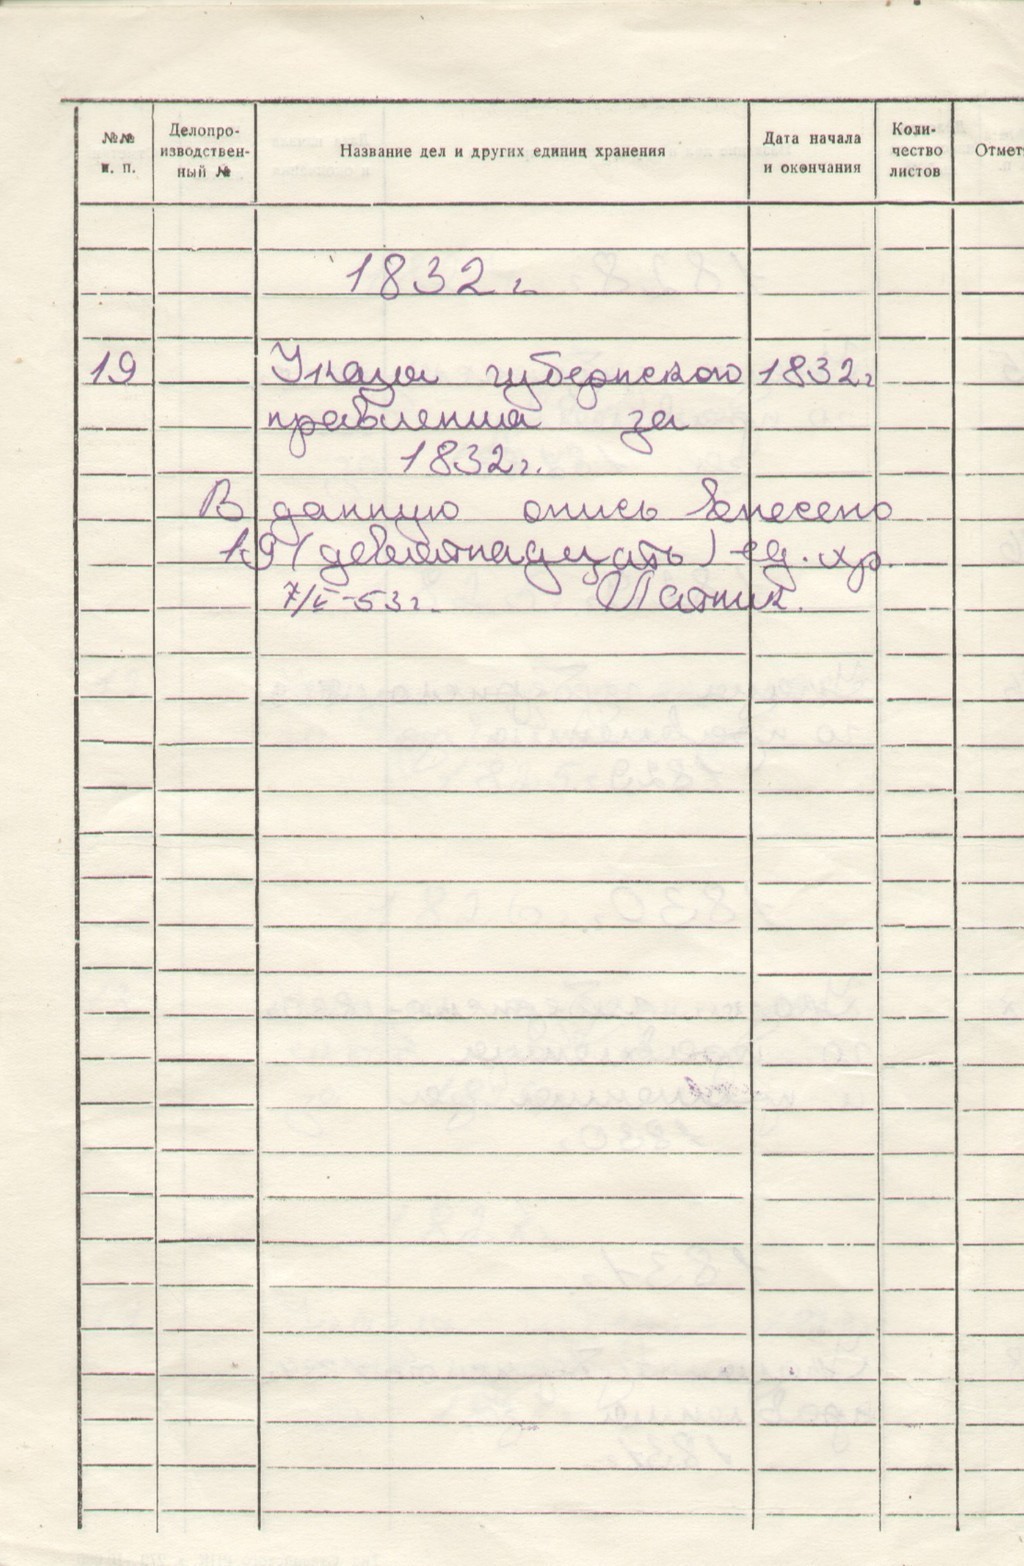 №№ п. п.
Делопро-
изводствен-
ный №
Название дел и других единиц хранения
Дата начала
и окончания
Коли-
чество
листов
Отмет
1832 г.
19 Указы губернского 1832 г
правления за
1832 г.
В данную опись внесено
19 (девятнадцать) ед. хр.
7/V-53 г.